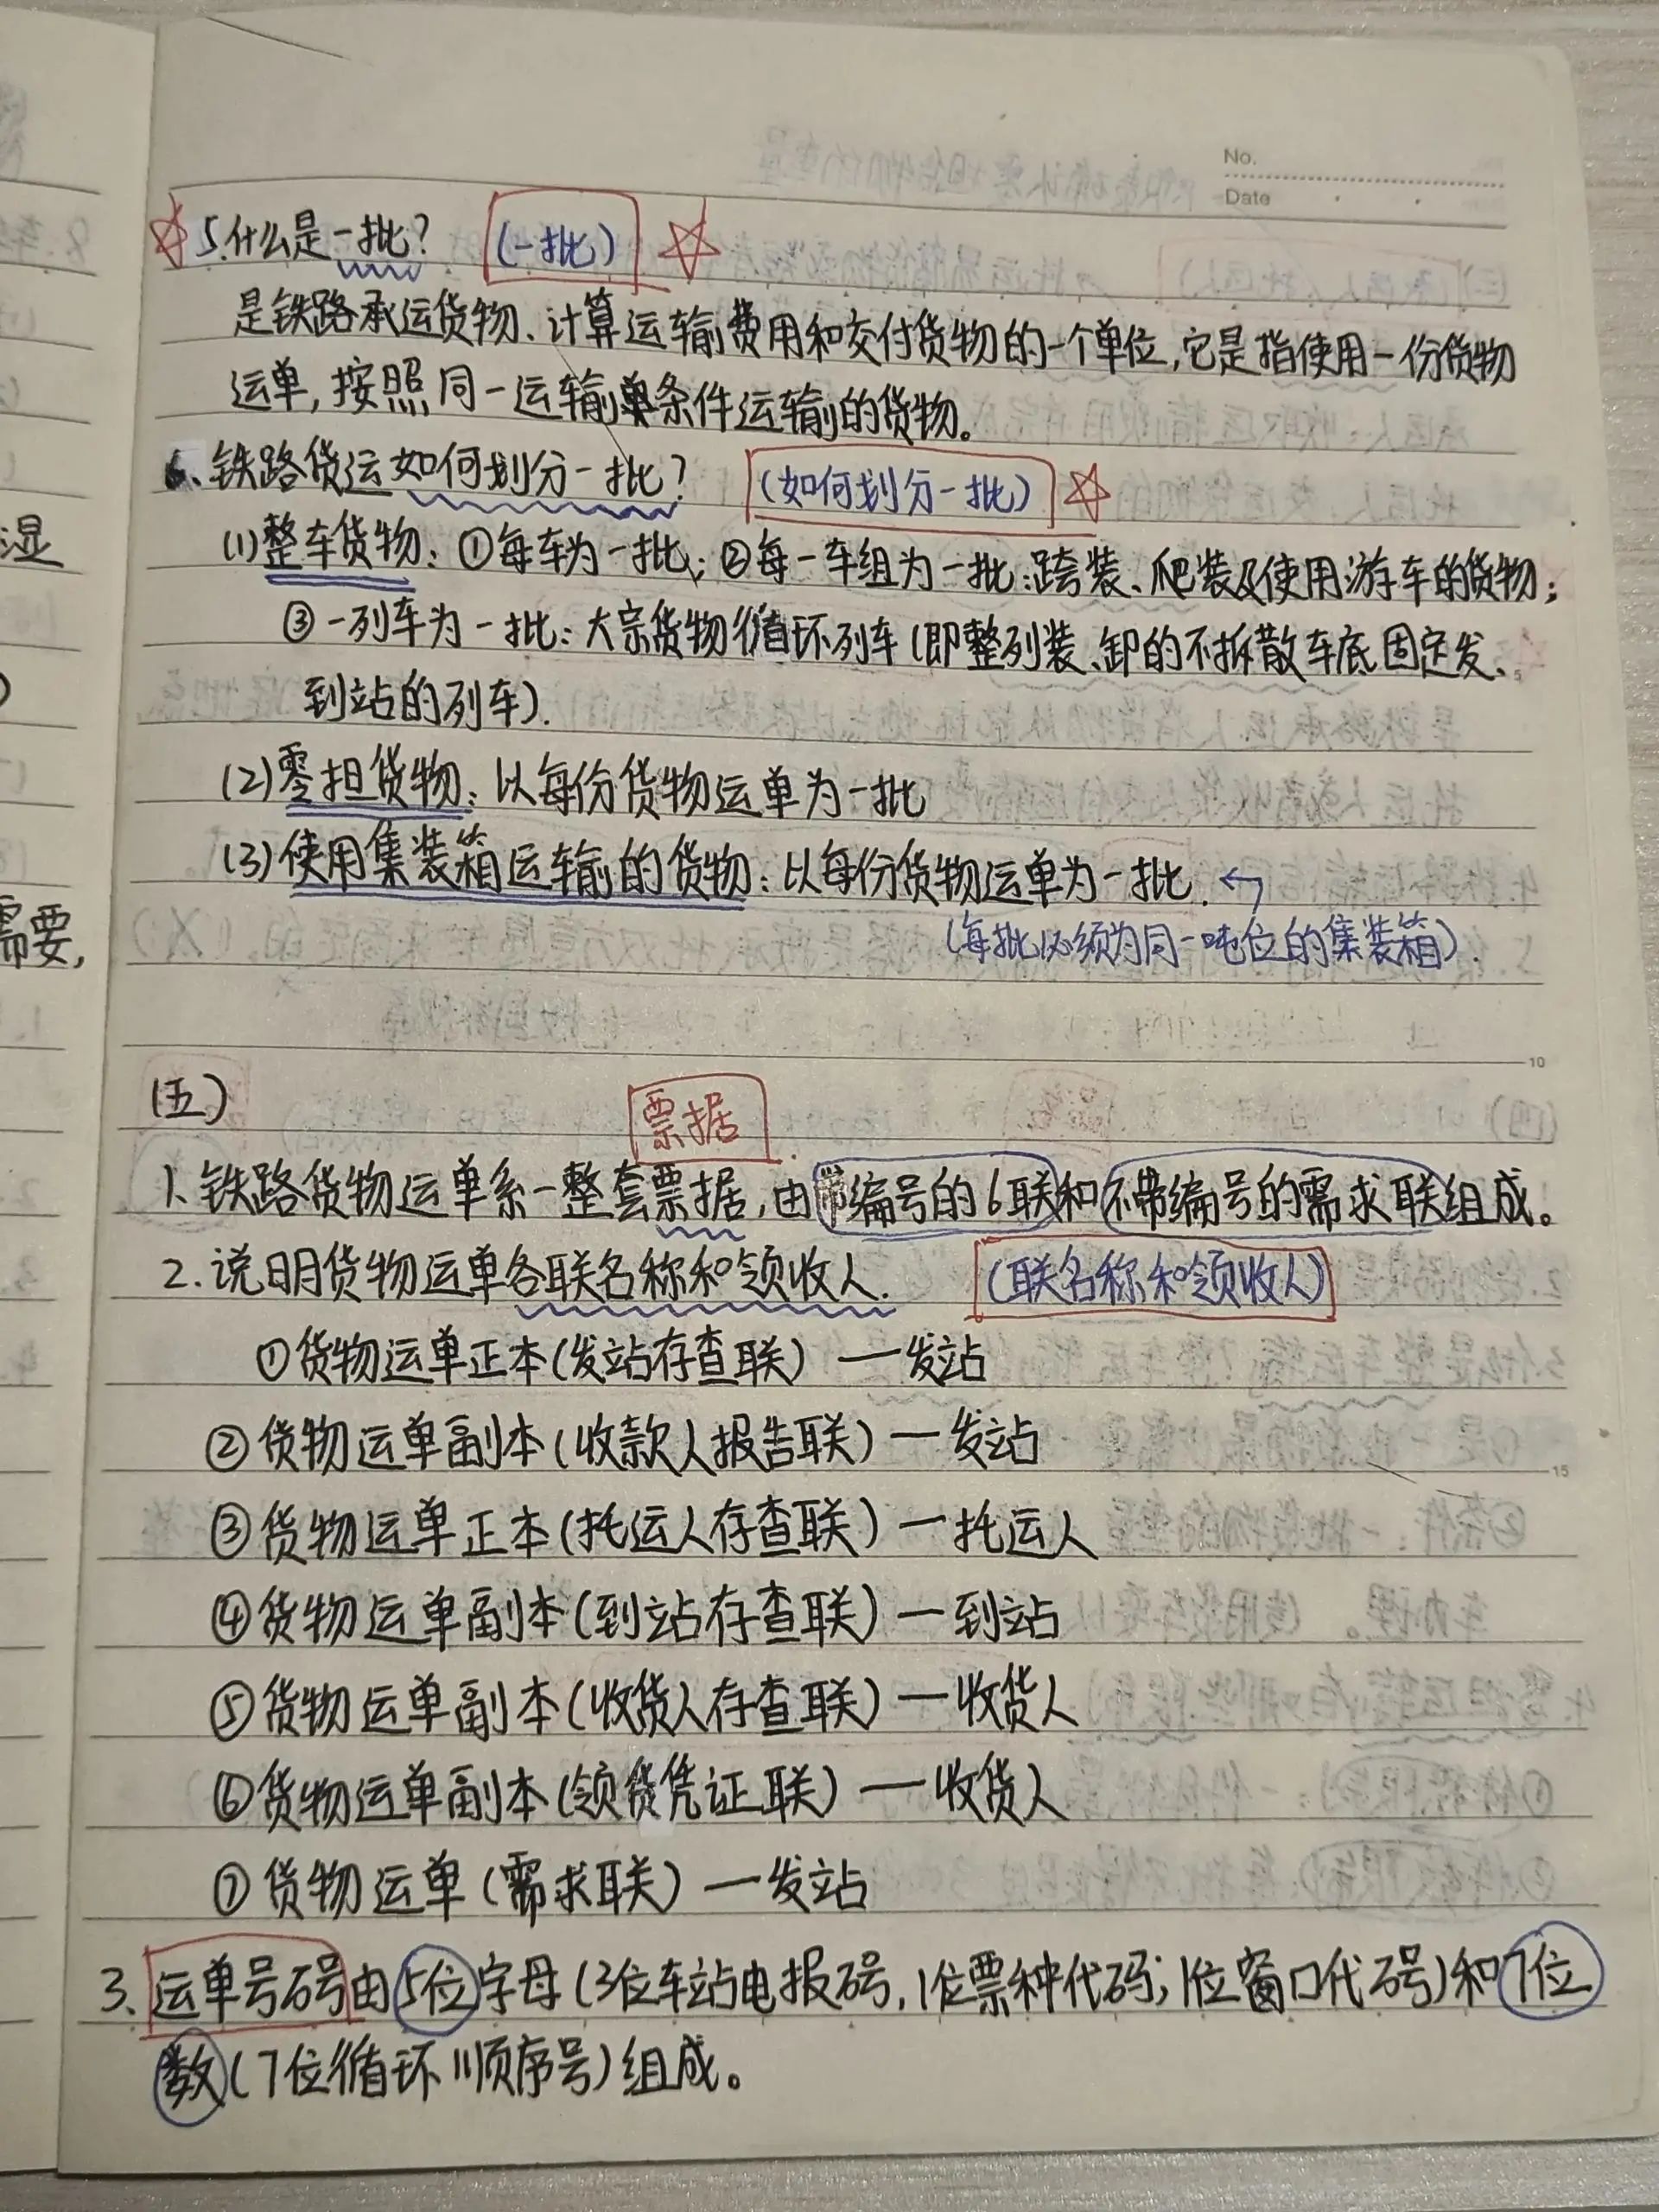 No.
Date
☆5.什么是一批? (一批) ☆
是铁路承运货物、计算运输费用和交付货物的一个单位,它是指使用一份货物
运单,按照同一运输条件运输的货物。
6、铁路货运如何划分一批? (如何划分一批) ☆
(1)整车货物:①每车为一批;②每一车组为一批:跨装、爬装及使用游车的货物;
③一列车为一批:大宗货物循环列车(即整列装、卸的不拆散车底固定发、
到站的列车).
(2)零担货物:以每份货物运单为一批
(3)使用集装箱运输的货物:以每份货物运单为一批.
(每批必须为同一吨位的集装箱).
10
(五)
票据
1、铁路货物运单系一整套票据,由带编号的6联和不带编号的需求联组成。
2.说明货物运单各联名称和领收人. (联名称和领收人)
①货物运单正本(发站存查联)一发站
②货物运单副本(收款人报告联)一发站
15
③货物运单正本(托运人存查联)一托运人
④货物运单副本(到站存查联)一到站
⑤货物运单副本(收货人存查联)一收货人
⑥货物运单副本(领货凭证联)一收货人
⑦货物运单(需求联)一发站
3、运单号码由5位字母(3位车站电报码,1位票种代码;1位窗口代号)和7位
数(7位循环顺序号)组成。
湿
需要,